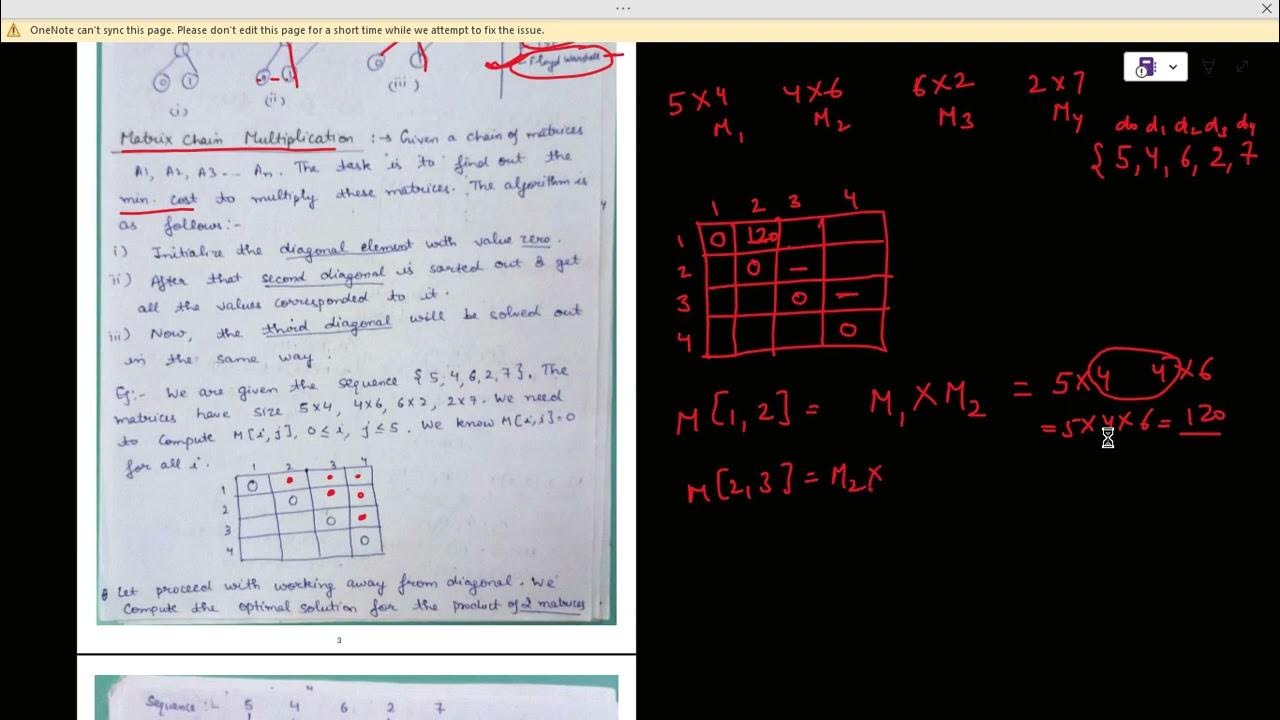 OneNote can't sync this page. Please don't edit this page for a short time while we attempt to fix the issue.
Floyd Warshall
(i)
(ii)
(iii)
Matrix Chain Multiplication :→ Given a chain of matrices
A1, A2, A3... An. The task is to find out the
min. cost to multiply these matrices. The algorithm is
as follows:-
i) Initialize the diagonal element with value zero.
ii) After that second diagonal is sorted out & get
all the values corresponded to it.
iii) Now, the third diagonal will be solved out
in the same way.
Eg:- We are given the sequence {5, 4, 6, 2, 7}. The
matrices have size 5x4, 4x6, 6x2, 2x7. We need
to compute M[i,j], 0≤i, j≤5. We know M[i,i]=0
for all i.
1 2 3 4
1 0
2 0
3 0
4 0
Let proceed with working away from diagonal. We
compute the optimal solution for the product of 2 matrices
3
Sequence: 5 4 6 2 7
5×4 4×6 6×2 2×7
M1 M2 M3 M4
d0 d1 d2 d3 d4
{ 5, 4, 6, 2, 7
1 2 3 4
1 0 120
2 0 –
3 0 –
4 0
M[1,2] = M1 × M2 = 5×4 4×6
= 5×4×6 = 120
M[2,3] = M2 ×